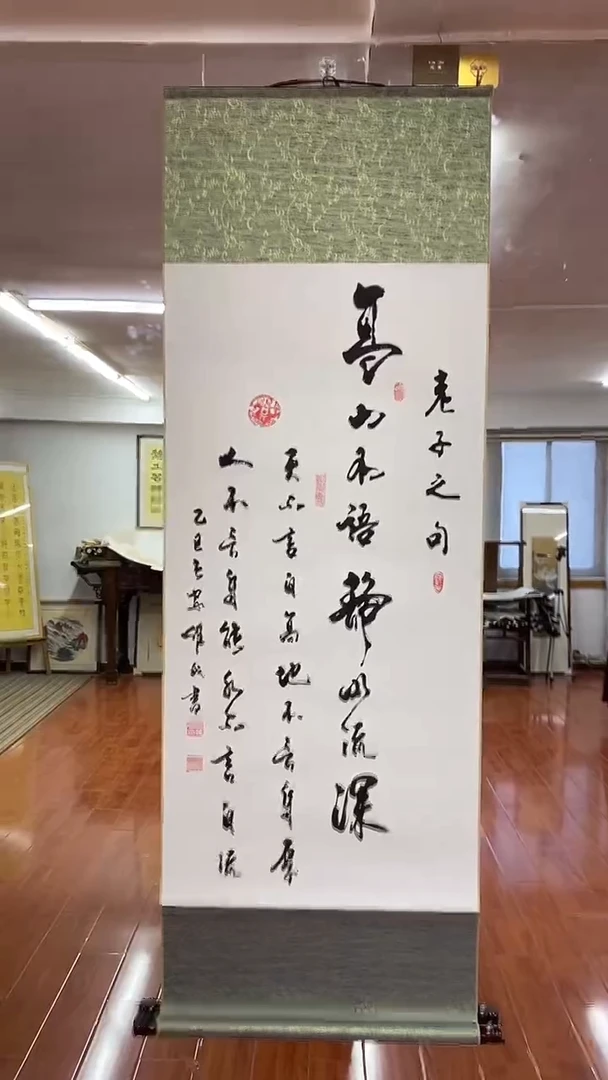 老子之句
高山不語静水流深
天不言自高地不言自厚
人不言自能水不言自流
乙巳 書